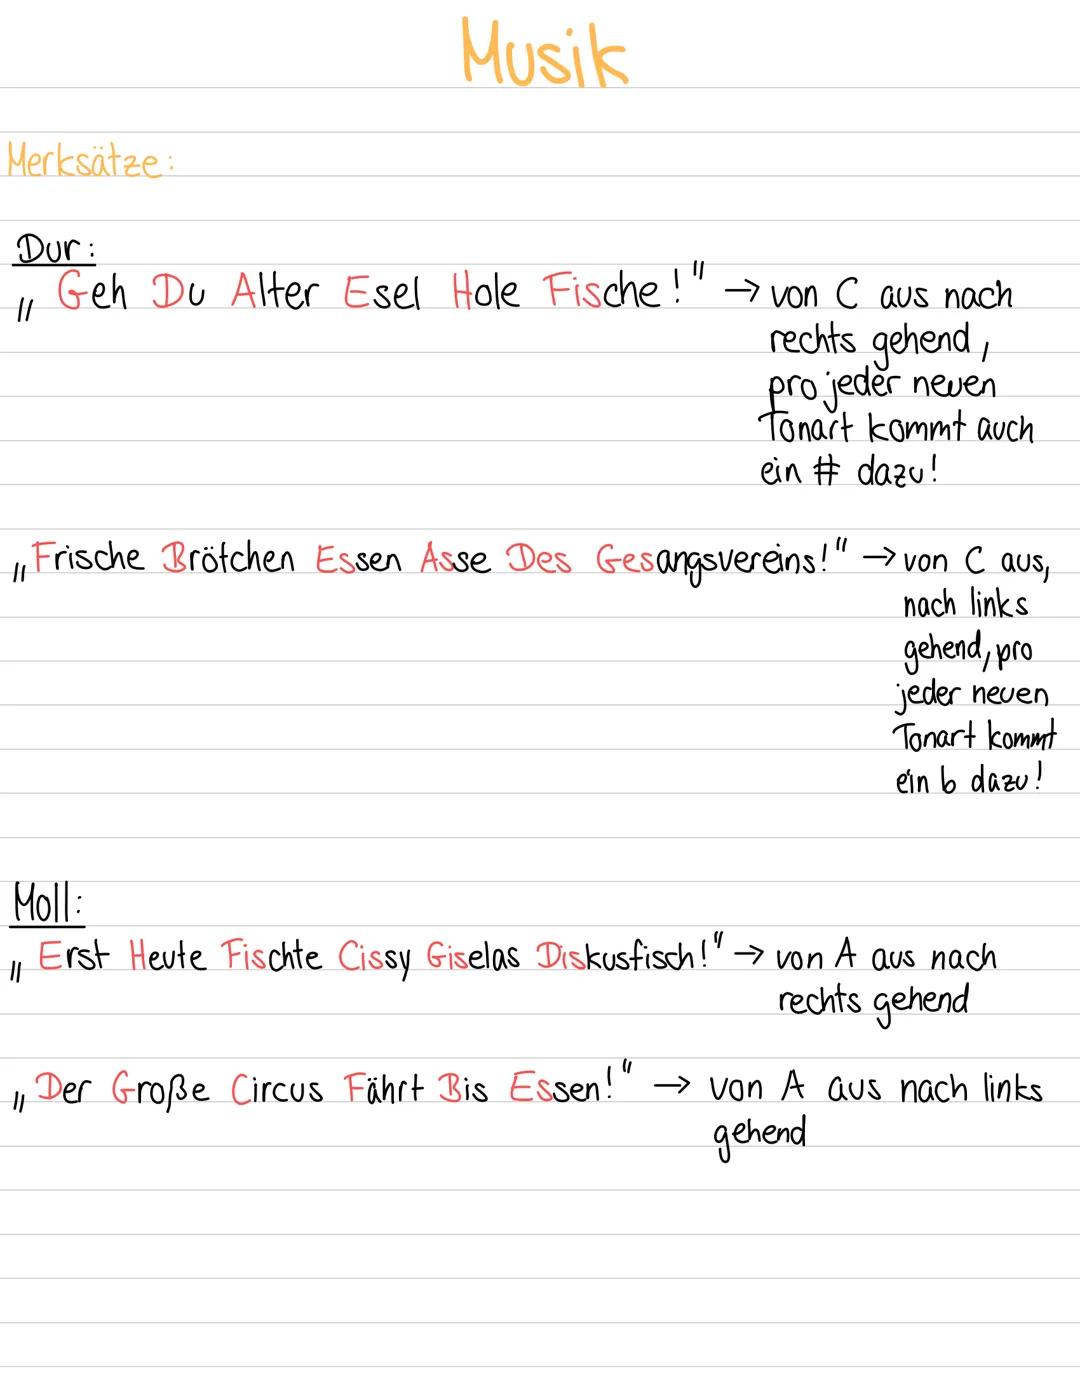 Musik
Merksätze:
Dur:
„Geh Du Alter Esel Hole Fische!" → von C aus nach
rechts gehend,
pro jeder neuen
Tonart kommt auch
ein # dazu!
„Frische Brötchen Essen Asse Des Gesangsvereins!" → von C aus,
nach links
gehend, pro
jeder neuen
Tonart kommt
ein b dazu!
Moll:
„Erst Heute Fischte Cissy Giselas Diskusfisch!" → von A aus nach
rechts gehend
„Der Große Circus Fährt Bis Essen!" → von A aus nach links
gehend